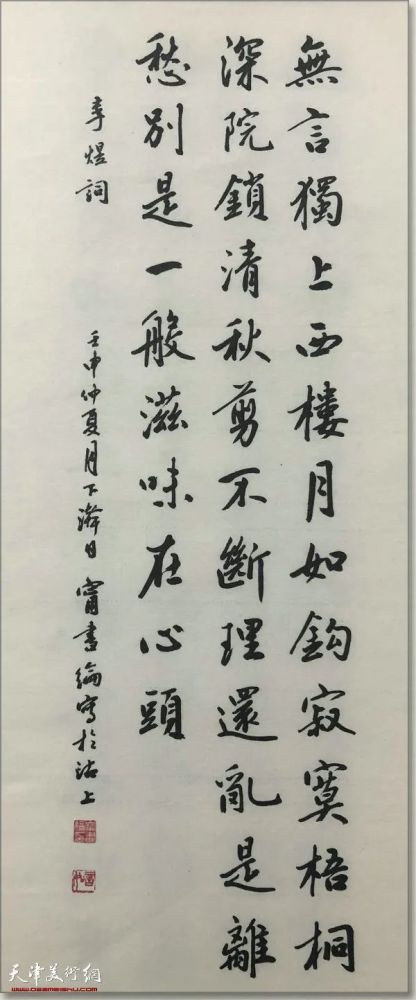 無言獨上西樓月如鈎寂寞梧桐
深院鎖清秋剪不斷理還亂是離
愁別是一般滋味在心頭
李煜詞
壬申仲夏月下澣日甯書綸寫於沽上
天津美術網